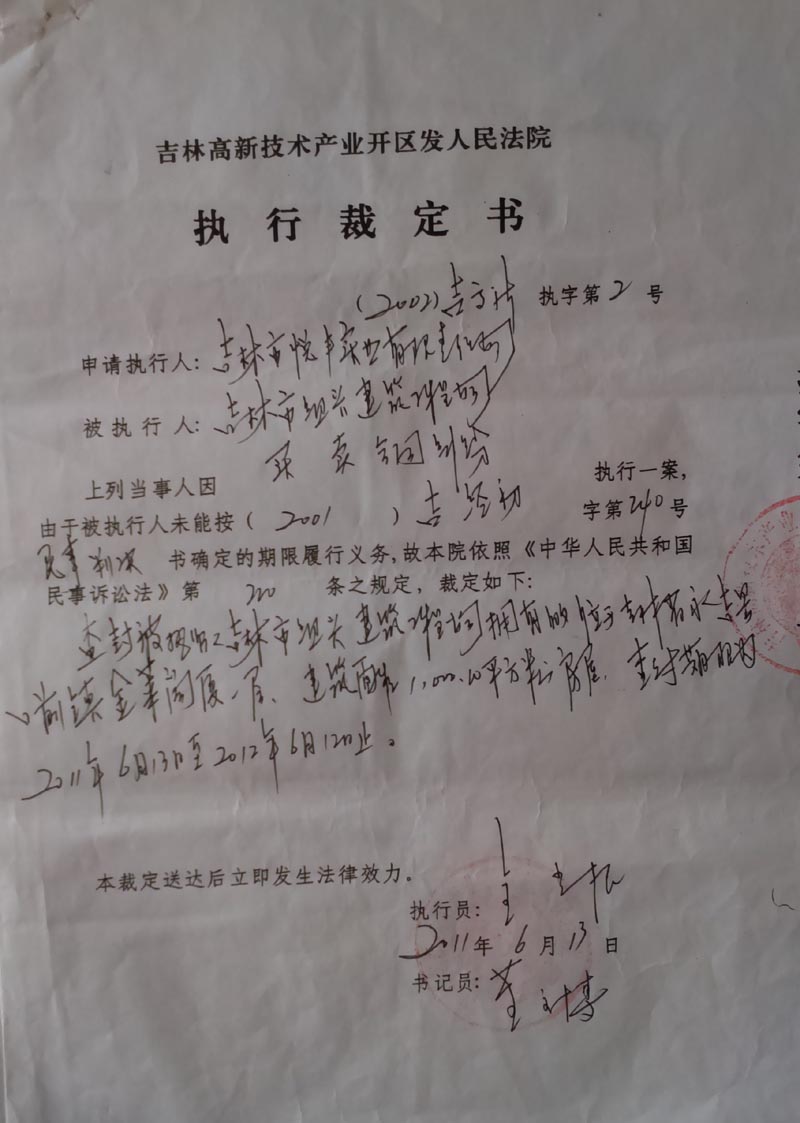 吉林高新技术产业开区发人民法院
执行裁定书
(2002)吉高新 执字第2号
申请执行人：吉林市悦丰实业有限责任公司
被执行人：吉林市坦头建筑工程公司
上列当事人因 买卖合同纠纷 执行一案，
由于被执行人未能按（2001）吉经初 字第240号
民事判决 书确定的期限履行义务，故本院依照《中华人民共和国
民事诉讼法》第 条之规定，裁定如下：
查封被执行人吉林市坦头建筑工程公司拥有的位于吉林省永吉县
口前镇金華阁厦一层、建筑面积1,000.10平方米房屋。查封期限为
2011年6月13日至2012年6月12日止。
本裁定送达后立即发生法律效力。
执行员：王
2011年6月13日
书记员：董